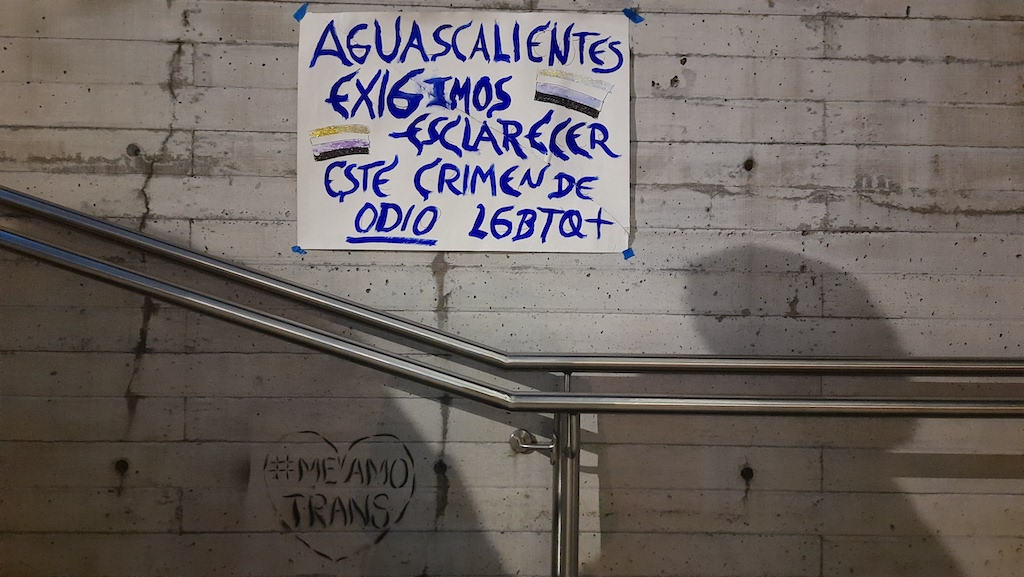 AGUASCALIENTES
EXIGIMOS
ESCLARECER
ESTE CRIMEN DE
ODIO LGBTQ+
#ME AMO
TRANS